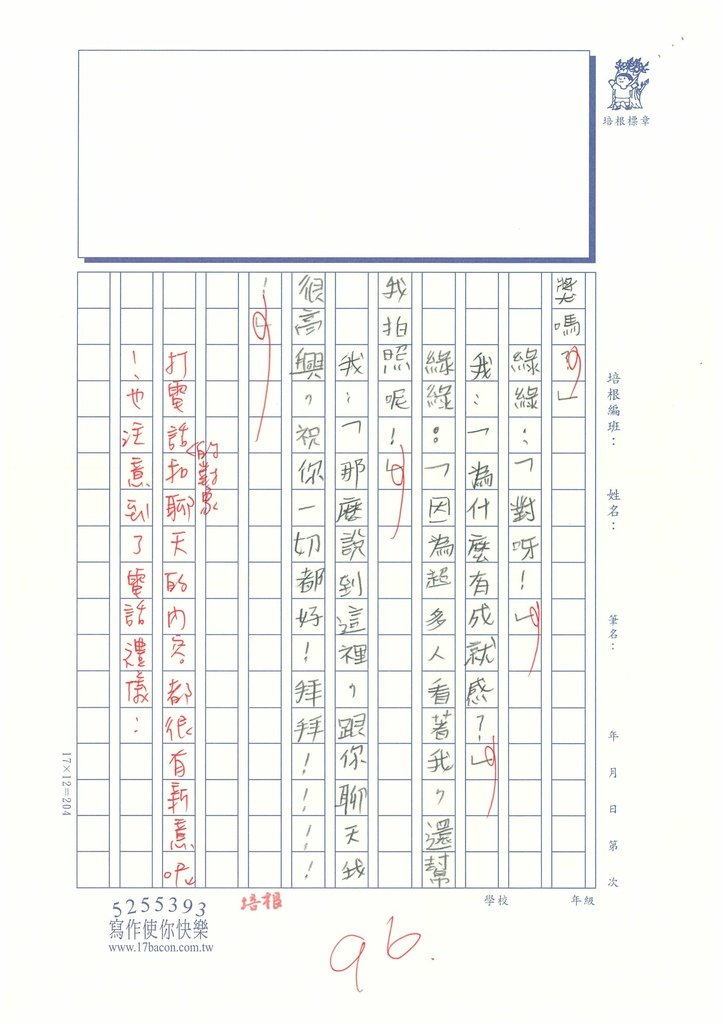 培根標章
培根編班：
姓名：
筆名：
年 月 日 第 次
獎嗎？」
綠綠：「對呀！」
我：「為什麼有成就感？」
綠綠：「因為超多人看著我，還幫
我拍照呢！」
我：「那麼說到這裡，跟你聊天我
很高興，祝你一切都好！拜拜！！！！
！」
的對象
打電話和聊天的內容都很有新意呢
！也注意到了電話禮儀：
17×12=204
年級
學校
培根
5255393
寫作使你快樂
www.17bacon.com.tw
96.